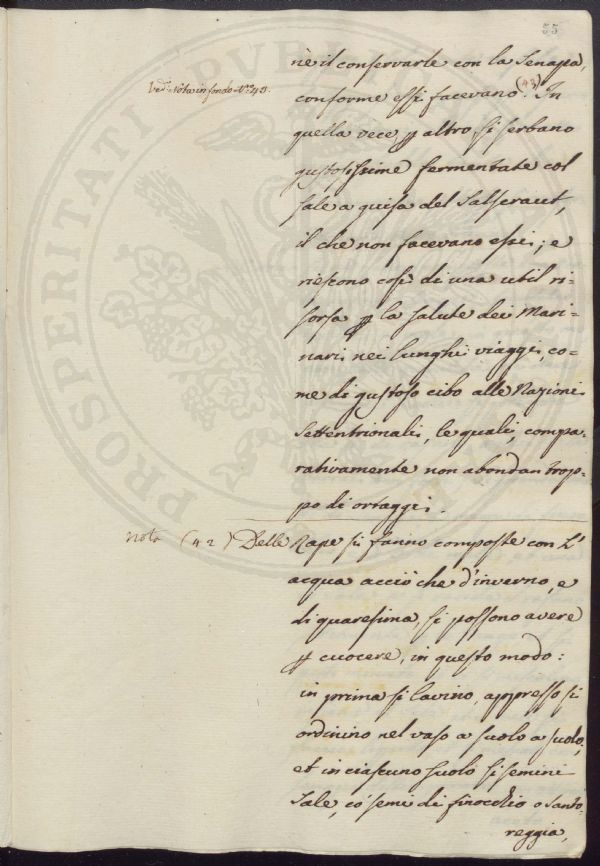 55
nè il conservarle con la Senapa,
Ved: Nota in fondo N.º 43.
conforme essi facevano (43). In
quella vece, p altro, si serbano
gustosissime fermentate col
sale a guisa del Salseraut,
il che non facevano essi; e
riescono così di una util ri=
sorsa p la salute dei Mari=
nari nei lunghi viaggi, co=
me di gustoso cibo alle Nazioni
Settentrionali, le quali, compa=
rativamente non abondan trop=
po di ortaggi.
Nota (42) Delle Rape si fanno composte con l'
acqua acciò che d'inverno, e
di quaresima, si possono avere
p cuocere, in questo modo:
in prima si lavino, appresso si
ordinino nel vaso a suolo a suolo,
et in ciascuno suolo si semini
Sale, có semi di finocchio o santo=
reggia,
PROSPERITATI PUBL